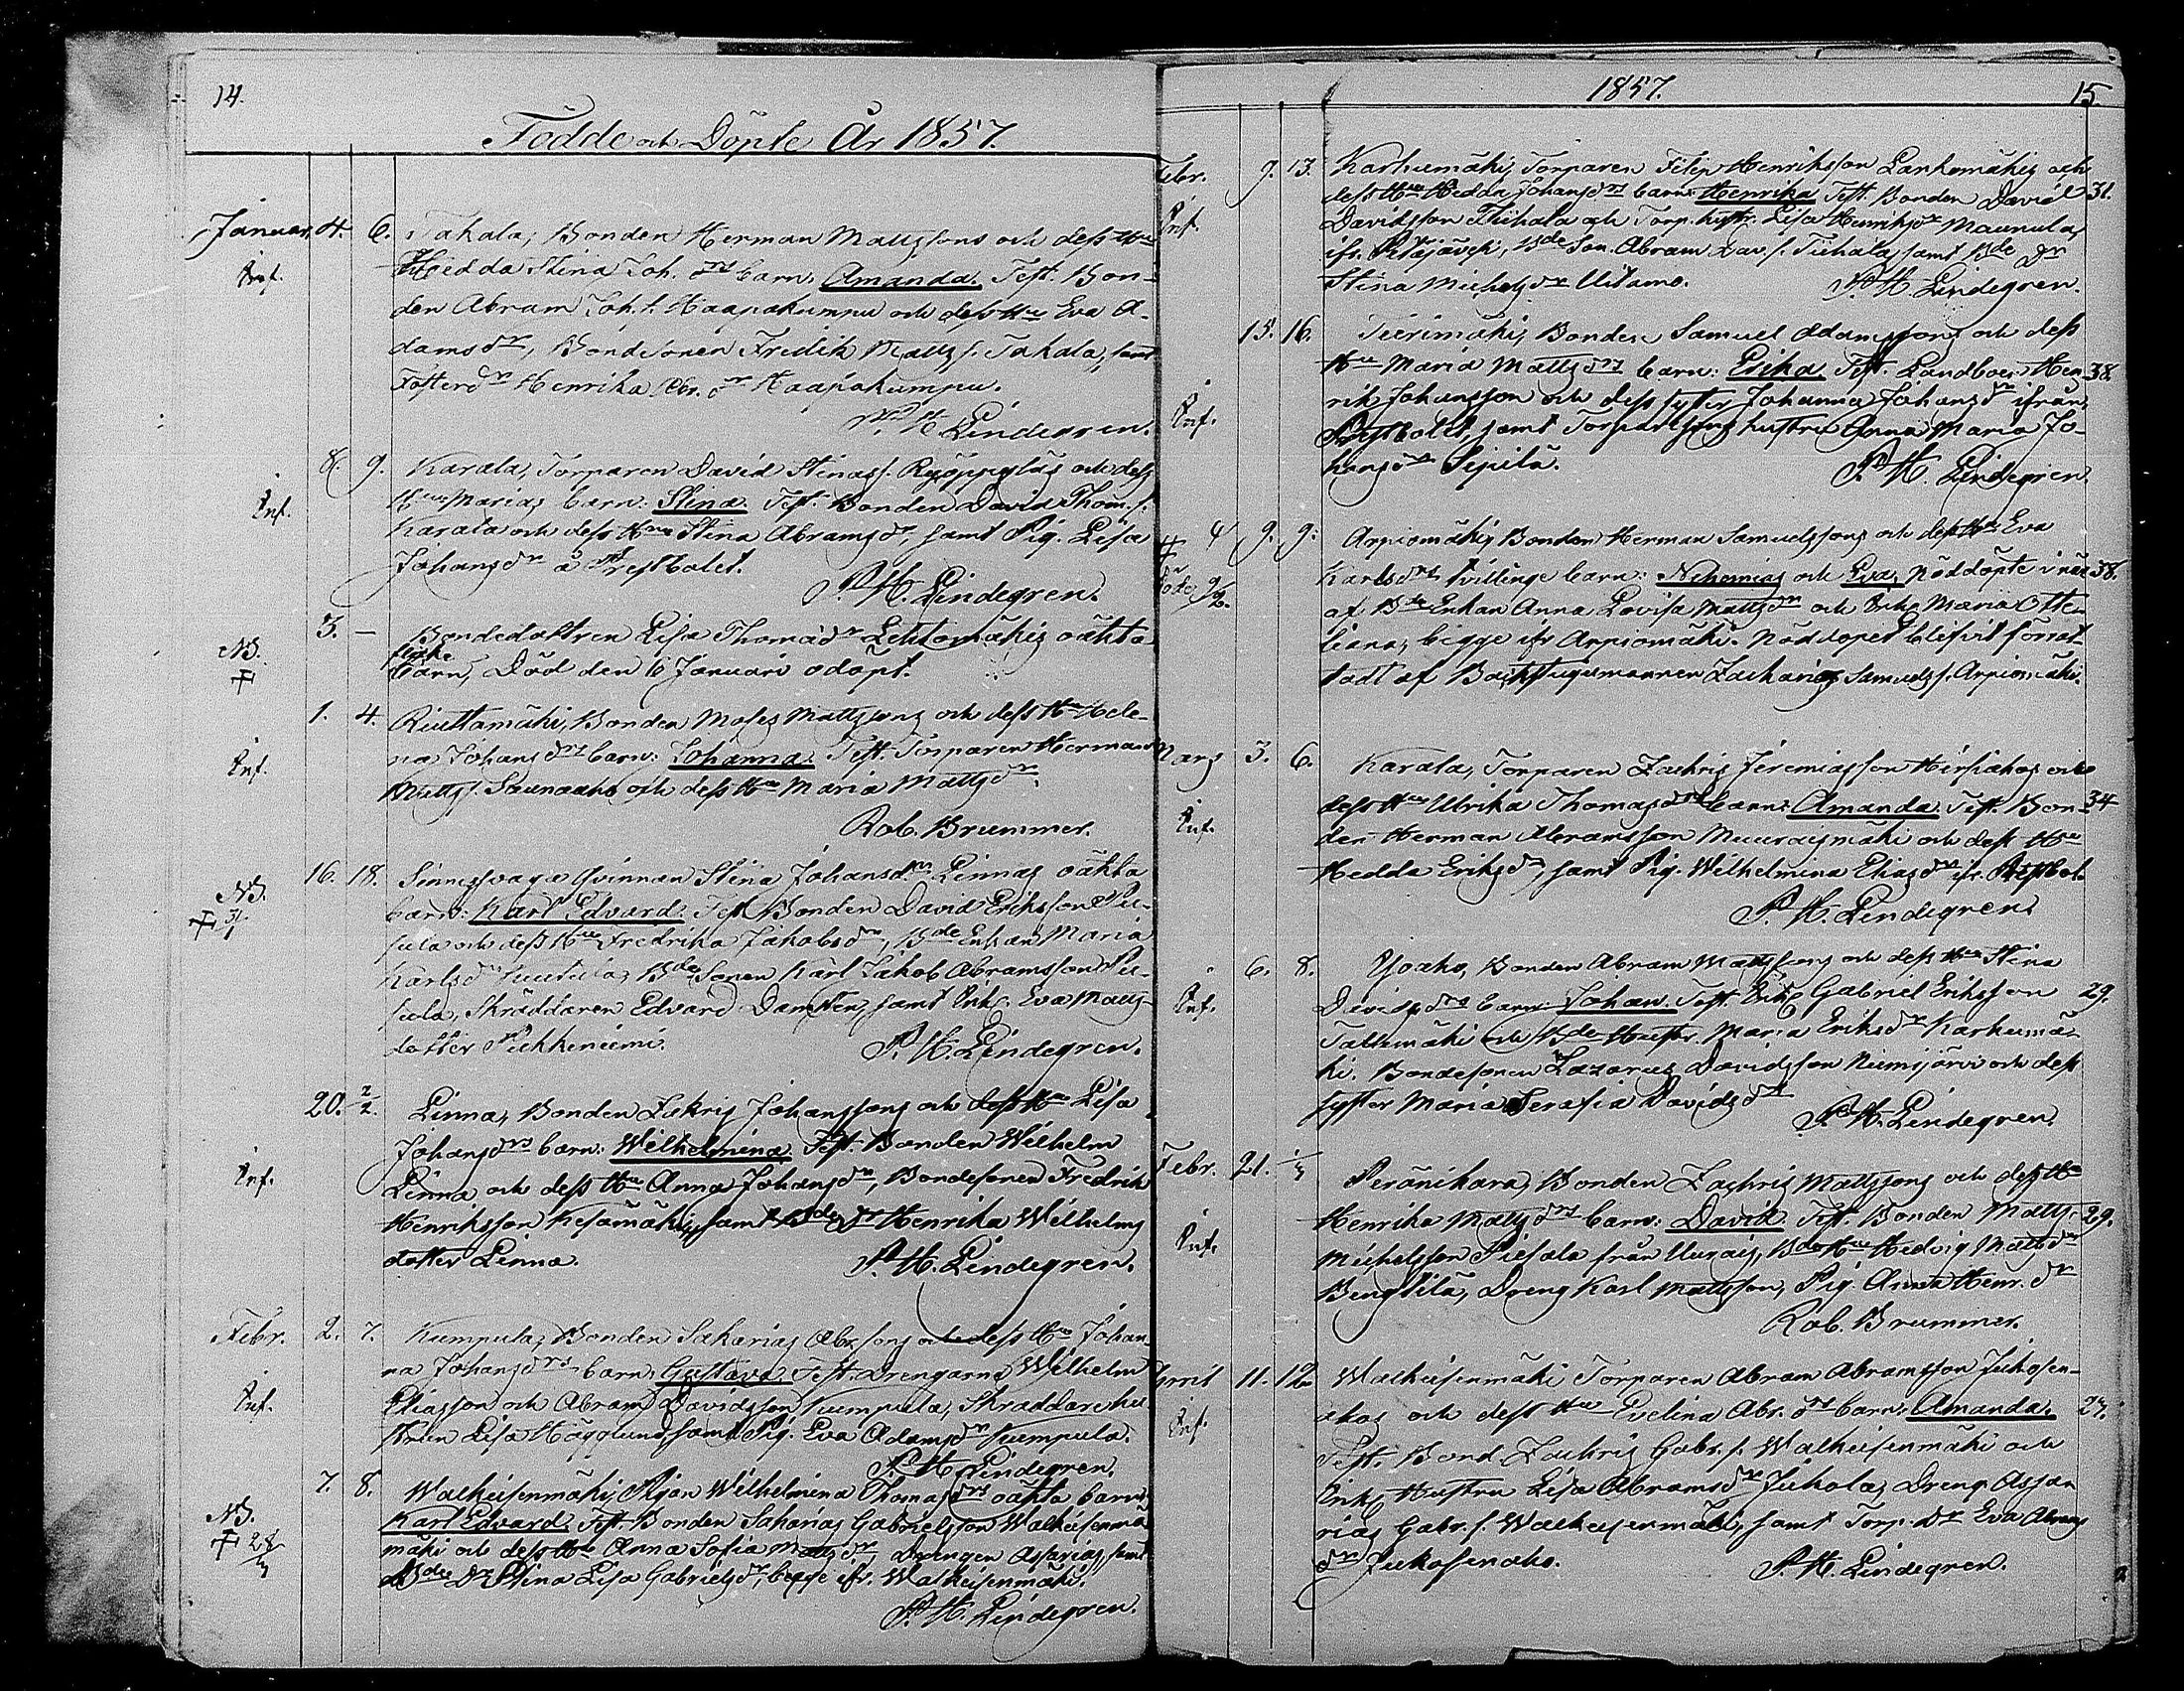 14.
Födde och Döpte År 1857.
Januar. 4. 6. Takala, Bonden Herman Mattssons och dess Hu
Hedda Stina Joh. drs barn: Amanda. Test. Bon-
den Abram Joh. s. Haapakumpu och dess Hu Eva A-
damsdr, Bondsonen Fredik Matts s. Takala, samt
Fosterdr Henrika Abr. dr Haapakumpu.
P. H. Lindegren.
Inf.
8. 9. Karala, Torparen David Stinas s. och dess
Hu Marias barn: Stina. Test. Bonden David Thom. s.
Karala och dess Hu Stina Abramsdr, samt Pig. Lisa
Johansdr å Prestbolet.
P. H. Lindegren.
Inf.
3. — Bondedottren Lisa Thomädr Lehtomäkis oäkta
flicke
barn, Död den 6 Januari odöpt.
NB.
1. 4. Riuttamäki, Bonden Moses Mattssons och dess Hu Hele-
na Johansdrs barn: Johanna. Test. Torparen Herman
Matts s. Saunaaho och dess Hu Maria Mattsdr.
Rob. Brummer.
Inf.
16. 18. Sinnessvaga qvinnan Stina Johansdr Linnas oäkta
barn: Karl Edvard. Test. Bonden David Eriksson Pii-
sula och dess Hu Fredrika Jakobsdr, Bde Enkan Maria
Karlsdr Bde Sonen Karl Jakob Abramsson Pii-
sula, Skräddaren Edvard Damsten, samt Enk. Eva Matts-
dotter Pukkeniemi.
P. H. Lindegren.
NB.
31/1
20. 2/2. Linna, Bonden Zakris Johanssons och dess Hu Lisa
Johansdrs barn: Wilhelmina. Test. Bonden Wilhelm
Linna och dess Hu Anna Johansdr, Bondesonen Fredrik
Henriksson Kesämäki, samt Bde dr Henrika Wilhelms
dotter Linna.
P. H. Lindegren.
Inf.
Febr. 2. 7. Kumpula, Bonden Sakarias Abr. sons och dess Hu Johan-
na Johansdrs barn: Gustava. Test. Drengarna Wilhelm
Eliasson och Abram Davidsson Kumpula, Skräddarehu-
strun Lisa Hägglund, samt Pig. Eva Adamsdr Kumpula.
P. H. Lindegren.
Inf.
7. 8. Walkeisenmäki, Pigan Wilhelmina Thomasdrs oäkta barn:
Karl Edvard. Test. Bonden Sakarias Gabrielsson Walkeisenmä
mäki och dess Hu Anna Sofia Mattsdr, Drengen Assarias, samt
Bde Dr Stina Lisa Gabrielsdr, begge ifr. Walkeisenmäki.
P. H. Lindegren.
NB.
1857. 15
Febr. 9. 13. Karhumäki, Torparen Filip Henriksson och
dess Hu Hedda Johansdrs barn: Henrika Test. Bonden David 31.
Davidsson Tiihala och Torp. hustr. Lisa Henriksdr Maunula
ifr. Petäjävesi, Bde Son. Abram Dav. s. Tiihala, samt Bde Dr
Stina Michelsdr Uitamo.
P. H. Lindegren.
Inf.
15. 16. Tierimäki, Bonden Samuel Adamssons och dess
Hu Maria Mattsdrs barn: Erika. Test. Landboen Hen 38.
rik Johansson och dess syster Johanna Johansdr ifrån
Prestbolet, samt Torparesons hustru Anna Maria Jo-
hansdr Sipilä.
P. H. Lindegren.
Inf.
9. 9. Arpiomäki, Bonden Herman Samuelssons och dess Hu Eva
Karlsdrs tvillinge barn: Nehemias och Eva, Nöddöpte i när 38.
af Bde Enkan Anna Lovisa Mattsdr och Enk. Maria Otte-
liana, bägge ifr Arpiomäki. Nöddopet blifvit förrat-
tadt af Backstugumannen Zacharias Samuels s. Arpiomäki.
Mars 3. 6. Karala, Torparen Zachris Jeremiasson Hirsiahos och
dess Hu Ulrika Thomasdrs barn: Amanda. Test. Bon- 34
den Herman Abramsson Muuraismäki och dess Hu
Hedda Eriksdr, samt Pig. Wilhelmina Eliasdr ifr. Prestbol.
P. H. Lindegren.
Inf.
6. 8. Ylöaho, Bonden Abram Mattssons och dess Hu Stina
Davidsdrs barn: Johan. Test. Enkl Gabriel Eriksson 29.
Tallmäki och Bde Hustr. Maria Eriksdr Karhumä-
ki. Bondesonen Lazarus Davidsson Niemijärvi och dess
syster Maria Serafia Davidsdr
P. H. Lindegren.
Inf.
Febr. 21. Peränikara, Bonden Zachris Mattssons och dess Hu
Henrika Mattsdrs barn: David. Test. Bonden Matts 29.
Michelsson Piesala från Uurais, Bde Hu Hedvig Mattsdr
Bengtilä, Dreng Karl Mattsson, Pig. Anna Henr. dr
Rob. Brummer.
Inf.
April 11. 12 Walkeisenmäki Torparen Abram Abramsson Jukosen-
ahos och dess Hu Evelina Abr. drs barn: Amanda. 27.
Test. Bond. Zachris Gabr. s. Walkeisenmäki och
Enkl Hustru Lisa Abramsdr Jukola, Dreng Assa-
rias Gabr. s. Walkeisenmäki, samt Torp. dr Eva Abrams
dr Jukosenaho.
P. H. Lindegren.
Inf.